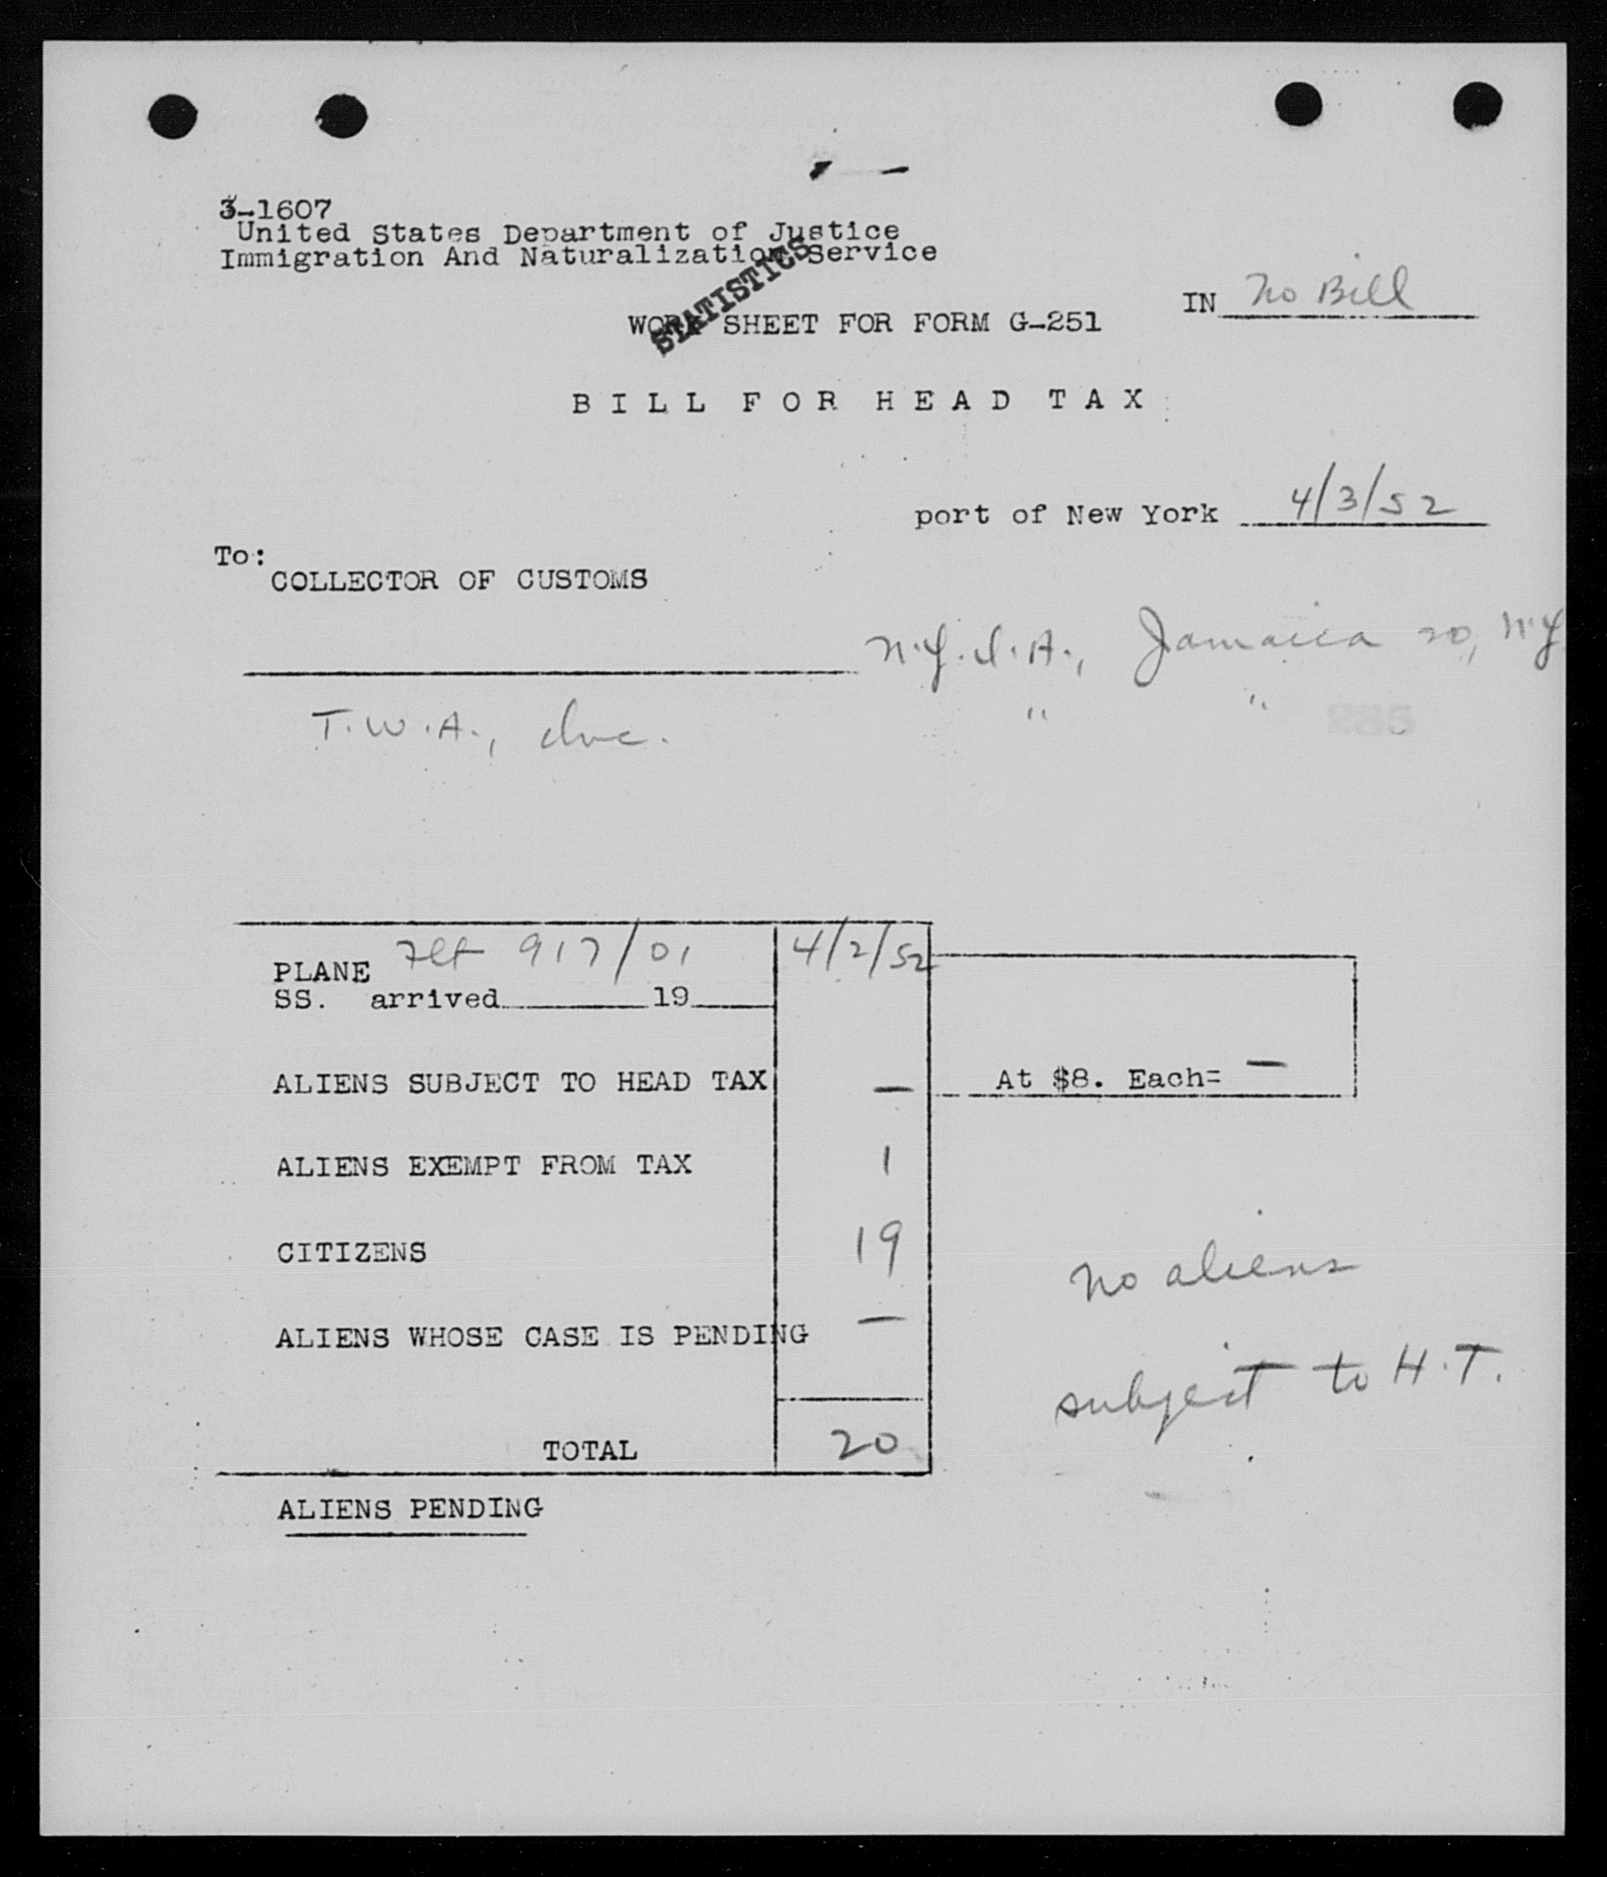 3-1607
United States Department of Justice
Immigration And Naturalization Service
STATISTICS
IN No Bill
WORK SHEET FOR FORM G-251
BILL FOR HEAD TAX
port of New York 4/3/52
To:
COLLECTOR OF CUSTOMS
N.Y.I.A., Jamaica 20, N.Y
T.W.A., Inc. " "
285
PLANE Flt 917/01 4/2/52
SS. arrived 19
ALIENS SUBJECT TO HEAD TAX — At $8. Each= —
ALIENS EXEMPT FROM TAX 1
CITIZENS 19
No aliens
ALIENS WHOSE CASE IS PENDING —
subject to H.T.
TOTAL 20
ALIENS PENDING